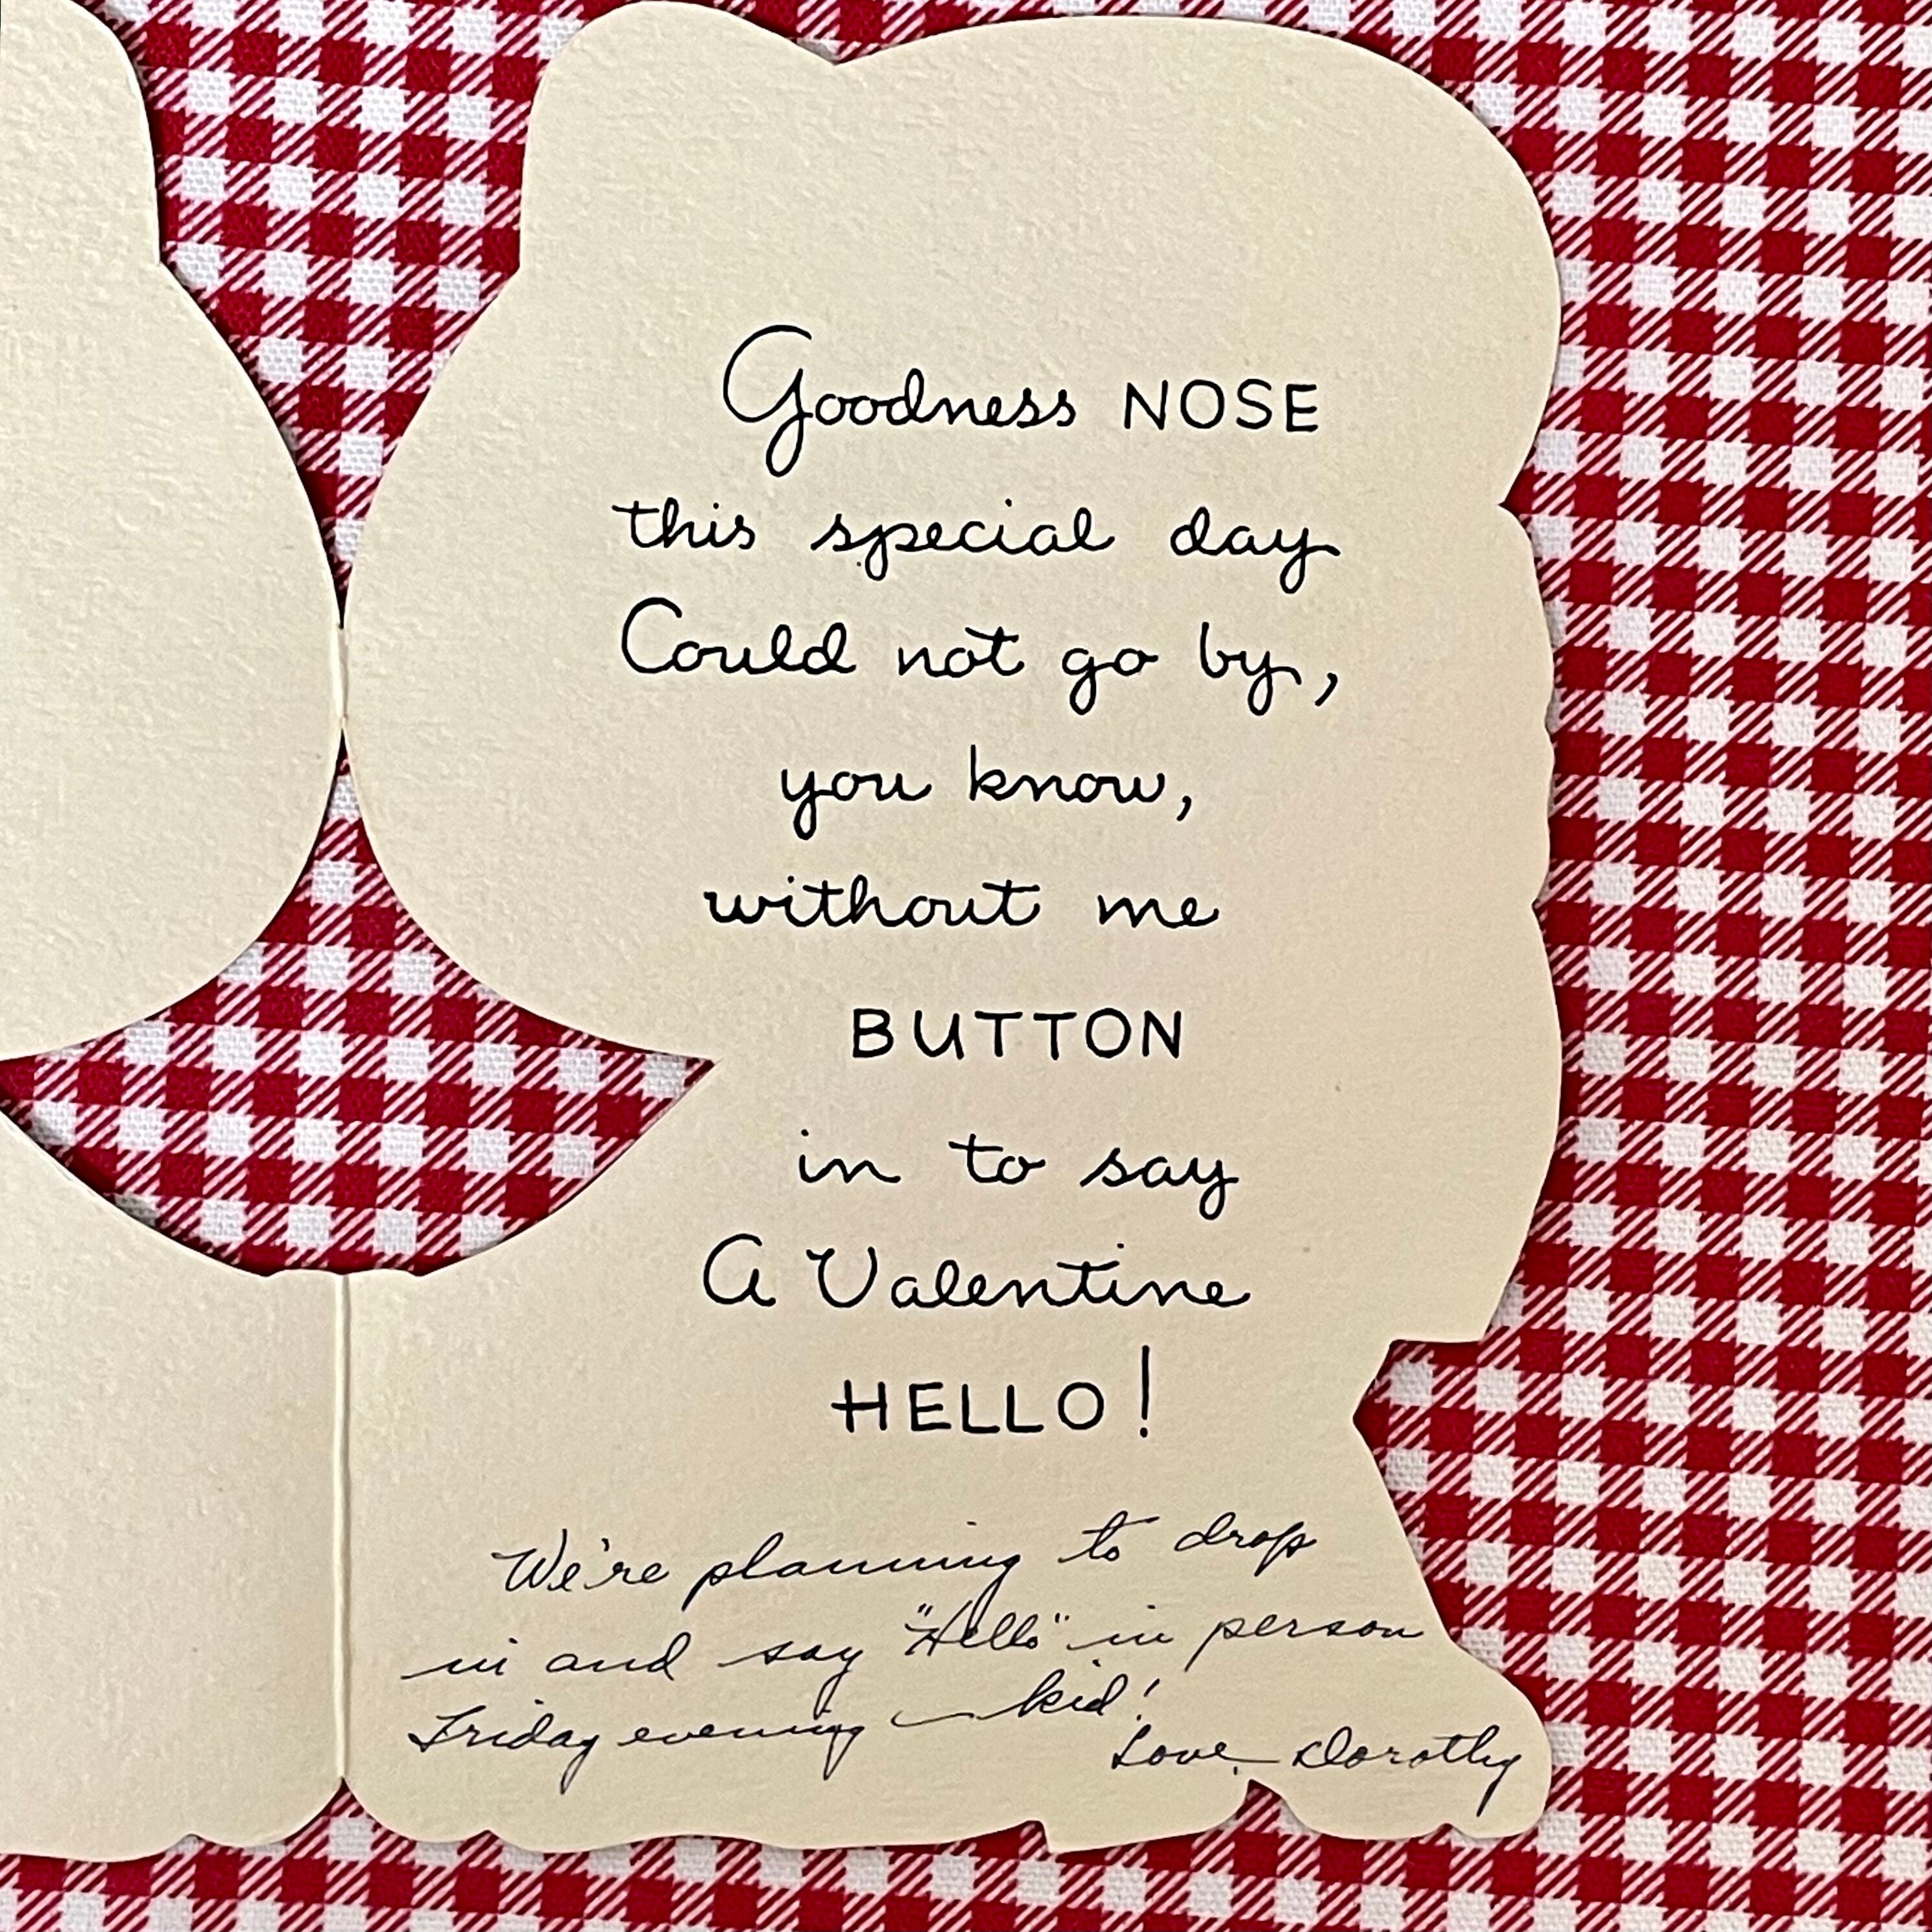 Goodness NOSE
this special day
Could not go by,
you know,
without me
BUTTON
in to say
A Valentine
HELLO!
We're planning to drop
in and say "Hello" in person
Friday evening — kid!
Love, Dorothy